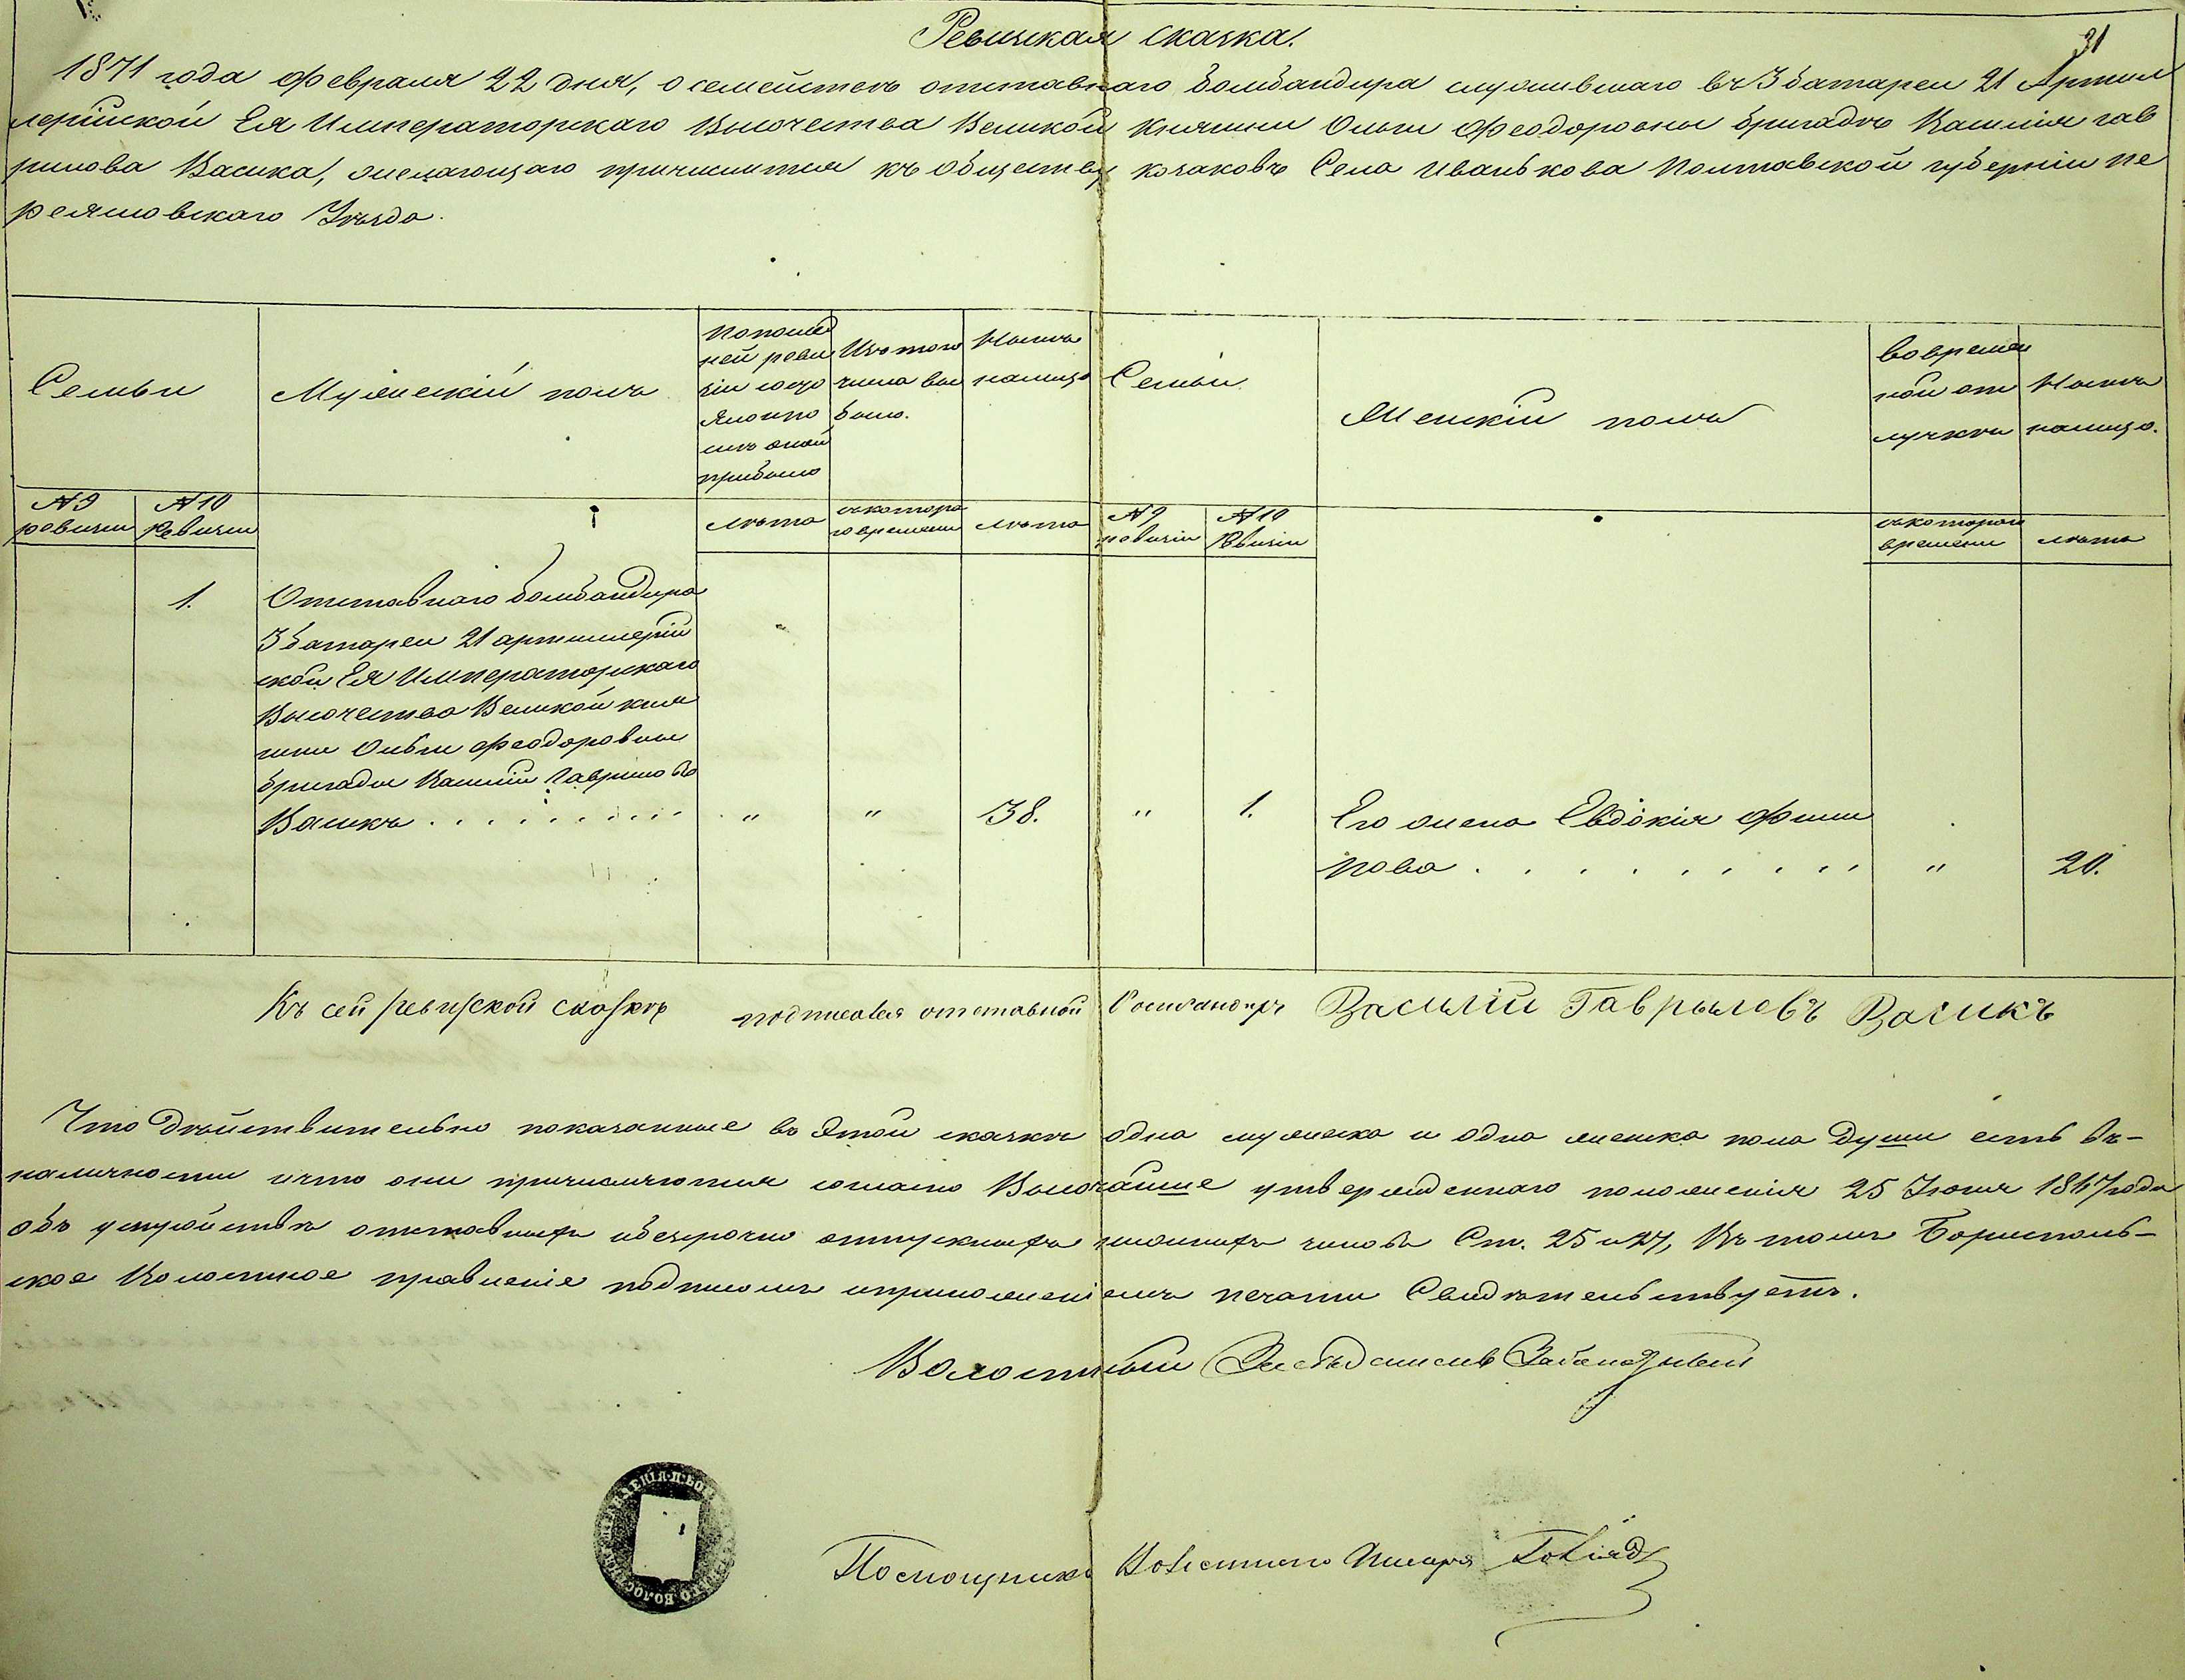 Ревизская сказка.
31
1871 года Февраля 22 дня, о семействѣ отставнаго бомбандира служившаго въ 3 батареи 21 Артил
лерійской Ея Императорскаго Высочества Великой Княгини Ольги Феодоровны бригадѣ Василія Гав
рилова Васика, желающаго причислится къ обществу козаковъ Села Иванькова Полтавской губерніи Пе
реяловскаго Уѣзда.
Семьи
Мужескій полъ
По послѣд
ней реви
зіи состо
яло и по
слѣ оной
прибыло
Изъ того
числа вы
было.
Нынѣ
налицо
Семьи
Женскій полъ
Во времен
ной от
лучкѣ
Нынѣ
налицо.
№ 9
ревизіи
№ 10
Ревизіи
лѣта
съ котора
го времени
лѣта
№ 9
ревизіи
№ 10
Ревизіи
съ котораго
времени
лѣта
1.
Отставнаго бомбандира
3 батареи 21 артиллерій
ской Ея Императорскаго
Высочества Великой Кня
гини Ольги Феодоровны
бригады Василій Гаврилова
Васикъ . . . . . . . . . . " " 38. " 1. Его жена Евдокія Фили
пова . . . . . . . . . " 20.
Къ сей ревизской сказкѣ подписался отставной бомбандиръ Василій Гаврылевъ Васикъ
Что дѣйствительно показанные въ этой сказкѣ одна мужеска и одна женска пола души есть въ-
наличности и что они причисляются согласно Высочайше утвержденнаго положенія 25 Іюня 1867 года
объ устройствѣ отставныхъ и безсрочно отпускныхъ нижнихъ чиновъ Ст. 25 и 27, Въ томъ Бориспольь-
ское Волостное правленіе подписомъ и приложеніемъ печати Свидѣтельствуетъ.
Волостный
Помощникъ Волостного Писаря